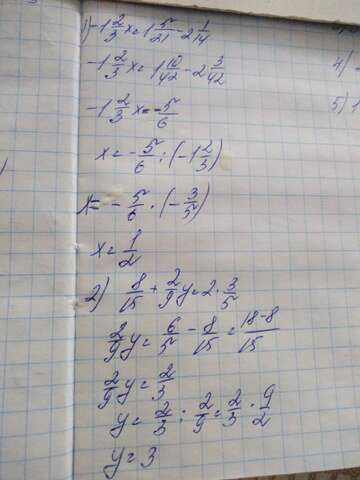 1) -1 2/3 x = 1 5/21 - 2 1/14
-1 2/3 x = 1 10/42 - 2 3/42
-1 2/3 x = -5/6
x = -5/6 : (-1 2/3)
x = -5/6 · (-3/5)
x = 1/2
2) 8/15 + 2/9 y = 2 · 3/5
2/9 y = 6/5 - 8/15 = 18-8/15
2/9 y = 2/3
y = 2/3 : 2/9 = 2/3 · 9/2
y = 3
4) -
5) 1